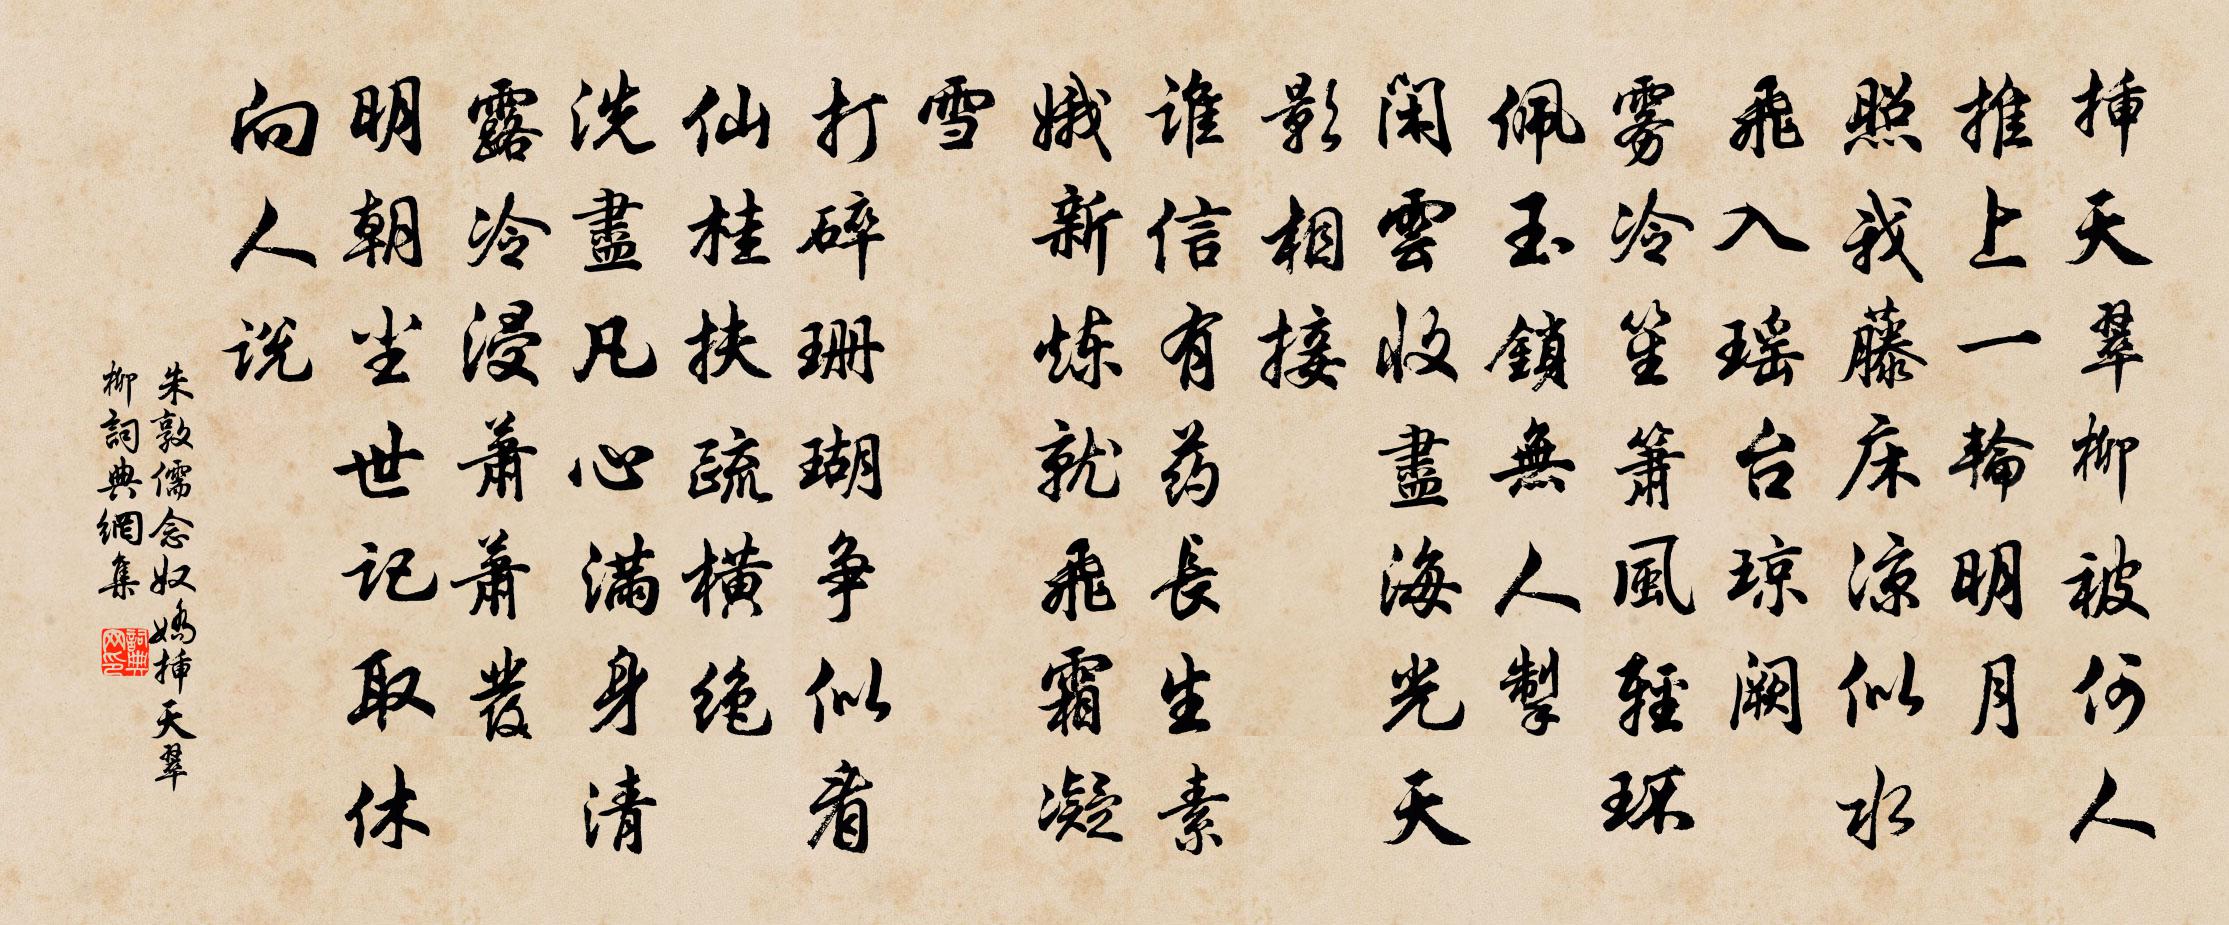 插天翠柳被何人
推上一輪明月
照我藤床凉似水
飛入瑶台琼阙
雾冷笙簫風輕环
佩玉鎖無人掣
闲雲收盡海光天
影相接
谁信有药長生素
娥新炼就飛霜凝
雪
打碎珊瑚争似看
仙桂扶疏横绝
洗盡凡心满身清
露冷浸蕭蕭發
明朝尘世记取休
向人说
朱敦儒念奴嬌插天翠
柳詞典網集
詞典网印